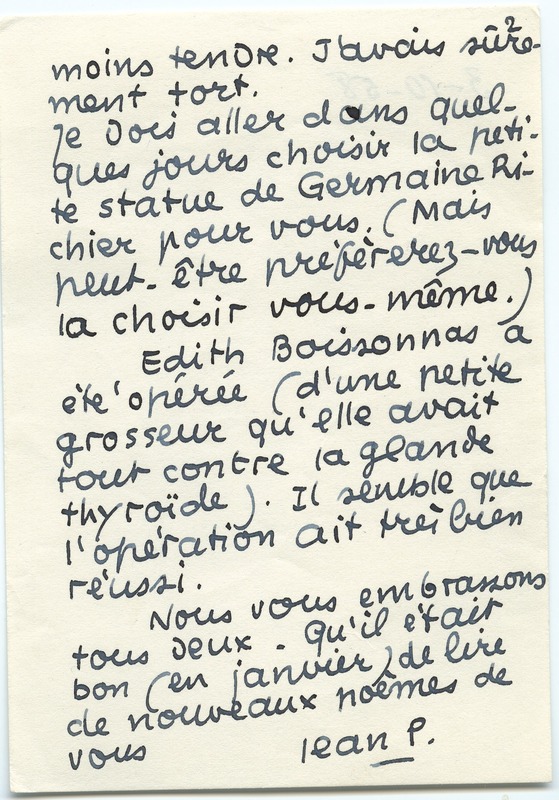 2
moins tendre. J'avais sûre-
ment tort.
Je dois aller dans quel-
ques jours choisir la peti-
te statue de Germaine Ri-
chier pour vous. (Mais
peut-être préfèrerez-vous
la choisir vous-même.)
Edith Boissonnas a
été opérée (d'une petite
grosseur qu'elle avait
tout contre la glande
thyroïde). Il semble que
l'opération ait très bien
réussi.
Nous vous embrassons
tous deux. Qu'il était
bon (en janvier) de lire
de nouveaux poèmes de
vous
Jean P.